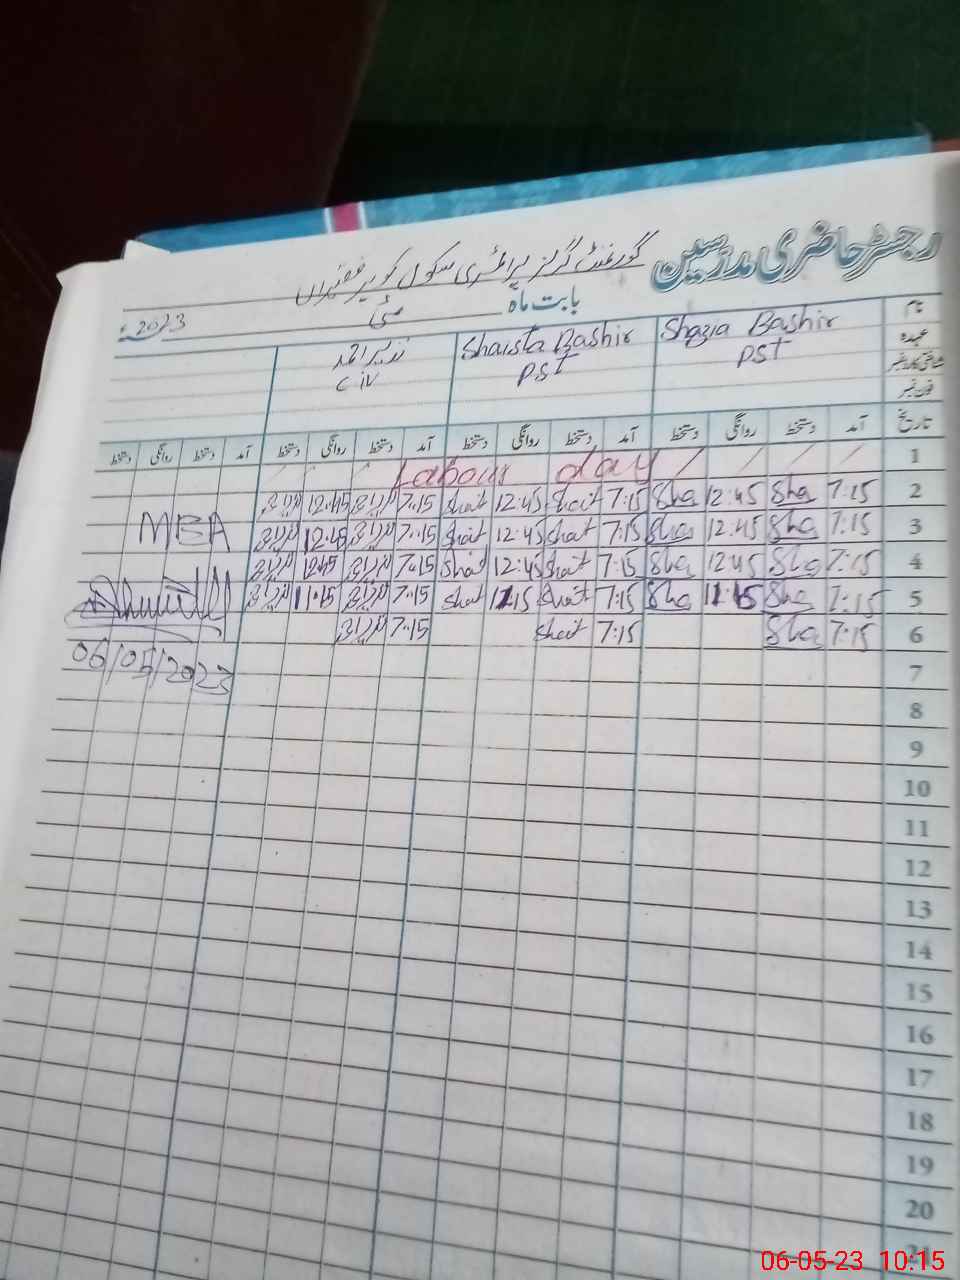 رجسٹر حاضری مدرسین گورنمنٹ گرلز پرائمری سکول
بابت ماہ مئی 2023ء
نام Shazia Bashir Shaista Bashir نذیر احمد
عہدہ PST PST C iv
شناختی کارڈ نمبر
فون نمبر
تاریخ آمد دستخط روانگی دستخط آمد دستخط روانگی دستخط آمد دستخط روانگی دستخط آمد دستخط روانگی دستخط
1 Labour day
2 7:15 Sha 12:45 Sha 7:15 Shait 12:45 Shait 7:15 12:45
3 7:15 Sha 12:45 Sha 7:15 Shait 12:45 Shait 7:15 12:45
4 7:15 Sha 12:45 Sha 7:15 Shait 12:45 Shait 7:15 12:45
5 7:15 Sha 11:15 Sha 7:15 Shait 11:15 Shait 7:15 11:15
6 7:15 Sha 7:15 Shait 7:15
MBA
06/05/2023
7
8
9
10
11
12
13
14
15
16
17
18
19
20
21
06-05-23 10:15